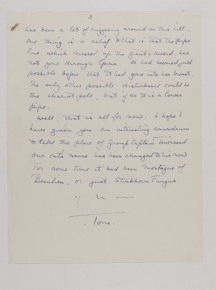 has been a lot of buggering around on this hill.
One thing is a relief. What is that the Pipe
line which messed up the Giant's sword, has
not gone through Cerne. It had seemed just
possible before that it had gone into his breast.
The only other possible disturbance could be
the electric pole, but if so it is a lower
pipe.
Well, that is all for now. I hope I
have given you an interesting conundrum
to take the place of Group Captain
our cats name has been changed to his now
For some time it had been Montague of
Beaulieu, or just Stinkhorn Fungus
Tom.